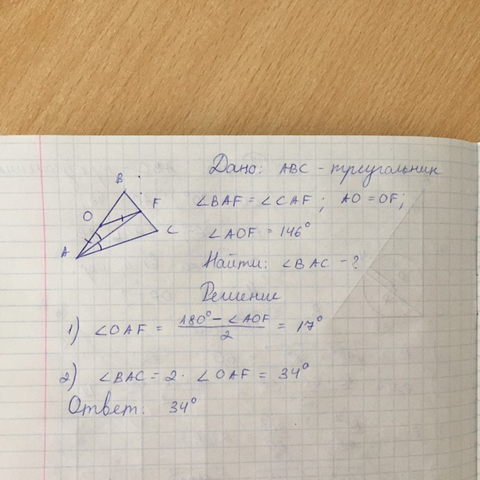 Дано: ABC - треугольник
∠BAF = ∠CAF ; AO = OF;
∠AOF = 146°
Найти: ∠BAC - ?
Решение
1) ∠OAF = (180° - ∠AOF)/2 = 17°
2) ∠BAC = 2 · ∠OAF = 34°
Ответ: 34°
B
O
F
C
A